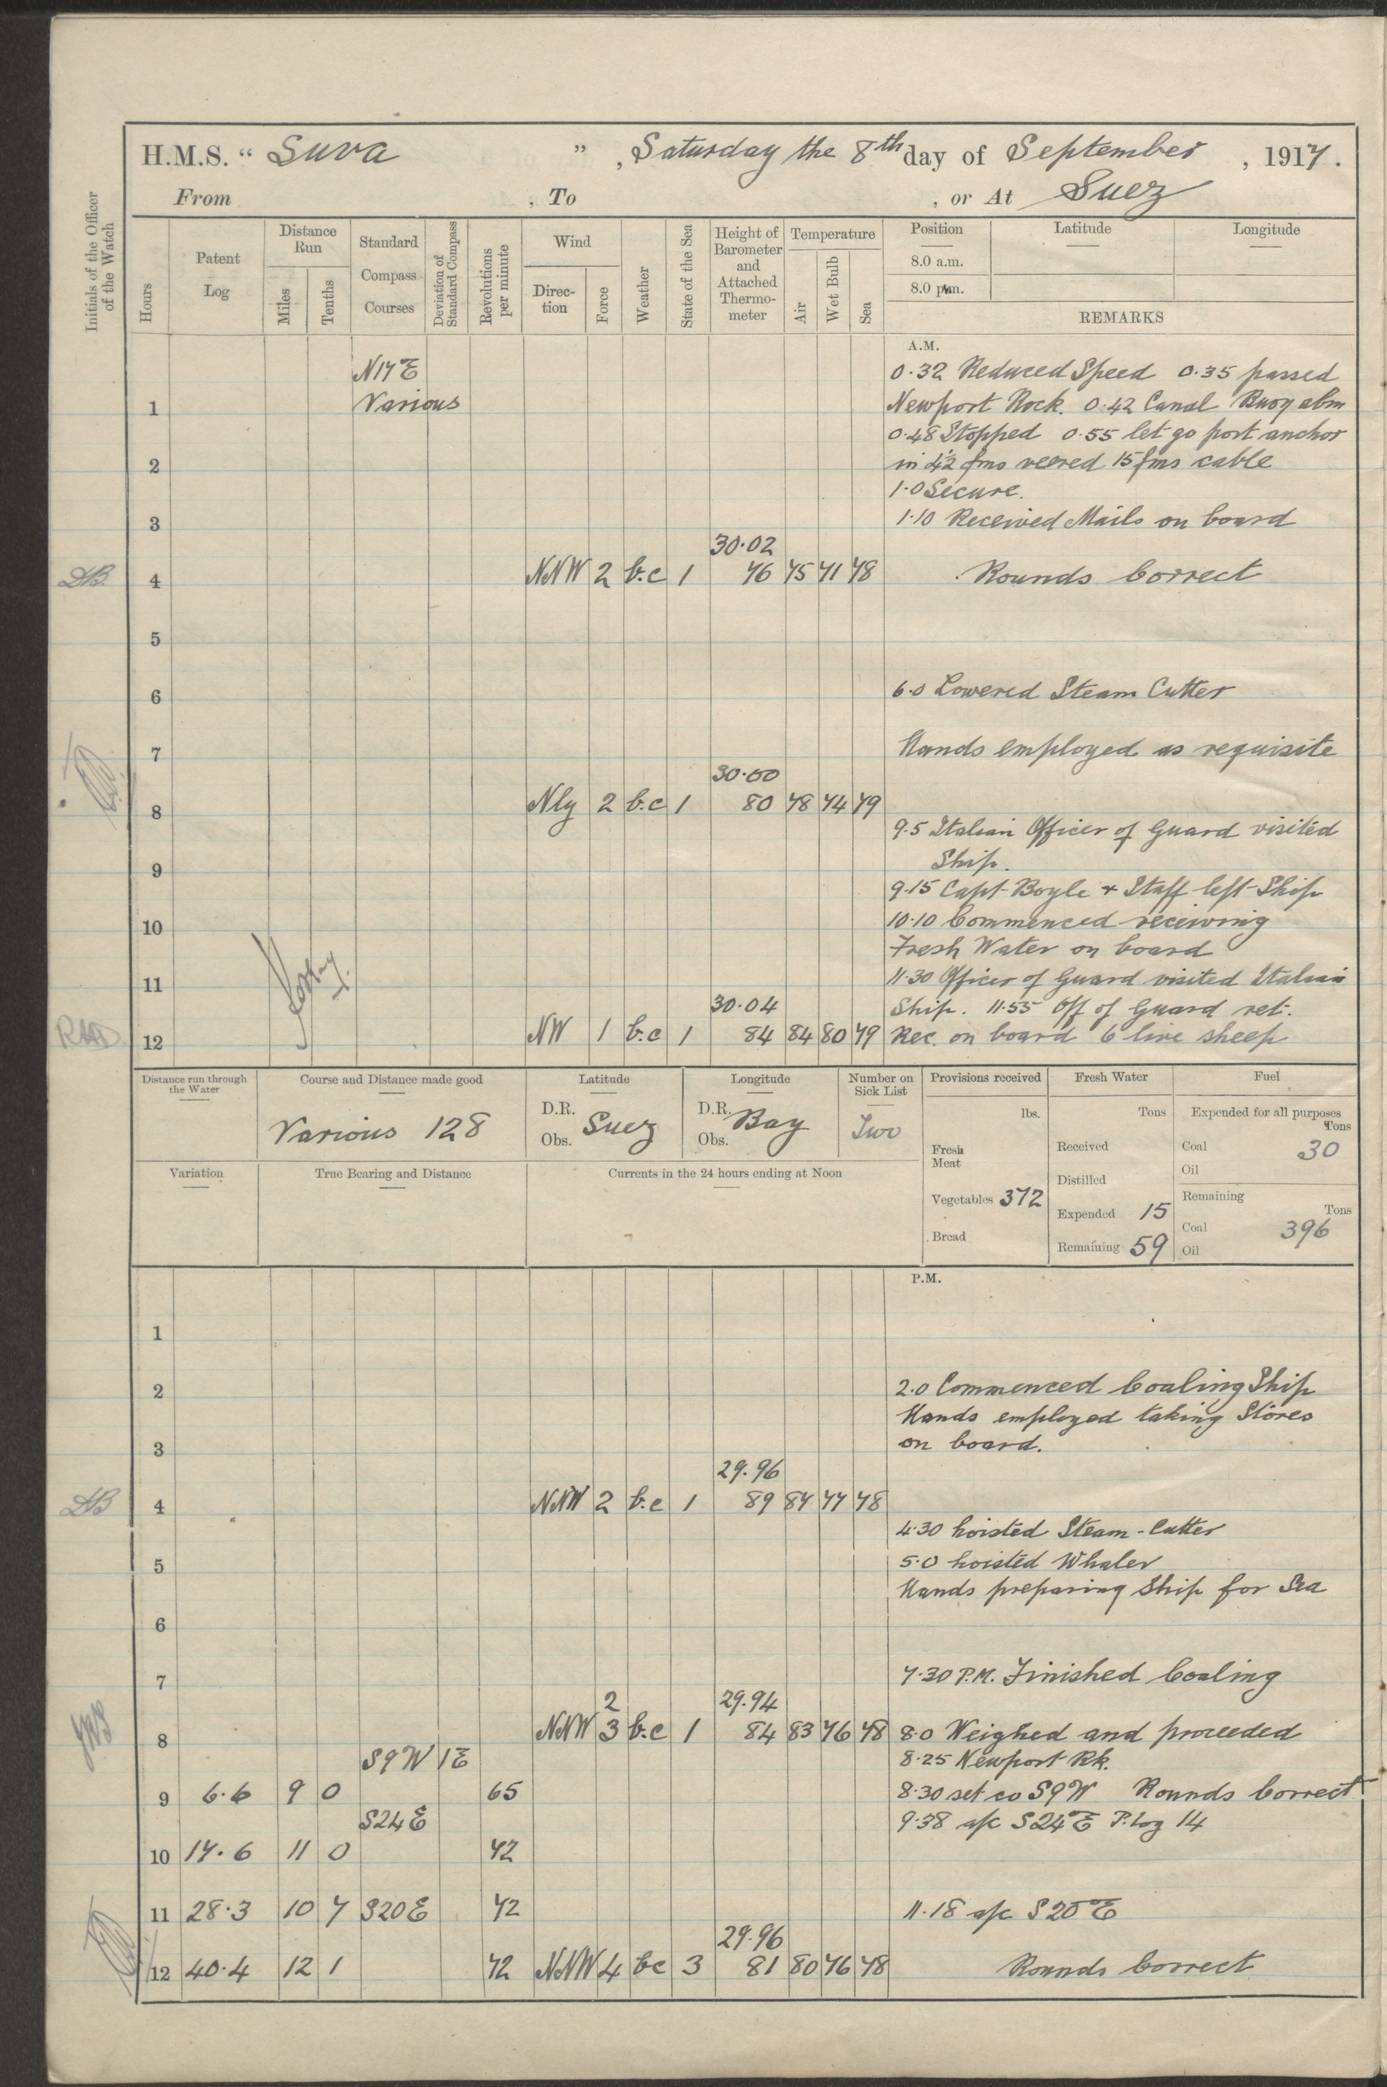 H.M.S. " Suva " , Saturday the 8th day of September , 1917.
From , To , or At Suez
Initials of the Officer of the Watch
Hours
Patent Log
Distance Run
Miles
Tenths
Standard Compass Courses
Deviation of Standard Compass
Revolutions per minute
Wind
Direction
Force
Weather
State of the Sea
Height of Barometer and Attached Thermometer
Temperature
Air
Wet Bulb
Sea
Position
8.0 a.m.
8.0 p.m.
Latitude
Longitude
REMARKS
A.M.
N17E 0.32 Reduced Speed 0.35 passed
1 Various Newport Rock. 0.42 Canal Buoy abm
0.48 Stopped 0.55 let go port anchor
2 in 4½ fms veered 15 fms cable
1.0 Secure.
3 1.10 Received Mails on board
30.02
DB 4 NNW 2 b.c 1 76 75 71 78 Rounds Correct
5
6 6.0 Lowered Steam Cutter
7 Hands employed as requisite
30.00
8 Nly 2 b.c 1 80 78 74 79
9.5 Italian Officer of Guard visited
9 Ship.
9.15 Capt Boyle + Staff left Ship
10 10.10 Commenced receiving
Fresh Water on board
11 11.30 Officer of Guard visited Italian
30.04 Ship. 11.55 Off of Guard ret.
12 NW 1 b.c 1 84 84 80 79 Rec. on board 6 live sheep
Distance run through the Water
Course and Distance made good
Various 128
Latitude
D.R. Obs. Suez
Longitude
D.R. Obs. Bay
Number on Sick List
Two
Provisions received
lbs.
Fresh Meat
Vegetables 372
Bread
Fresh Water
Tons
Received
Distilled
Expended 15
Remaining 59
Fuel
Expended for all purposes
Tons
Coal 30
Oil
Remaining
Tons
Coal 396
Oil
Variation
True Bearing and Distance
Currents in the 24 hours ending at Noon
P.M.
1
2 2.0 Commenced Coaling Ship
Hands employed taking Stores
3 on board.
29.96
DB 4 NNW 2 b.c 1 89 87 77 78
4.30 hoisted Steam-Cutter
5 5.0 hoisted Whaler
Hands preparing Ship for Sea
6
7 7.30 P.M. Finished Coaling
2 29.94
8 NNW 3 b.c 1 84 83 76 78 8.0 Weighed and proceeded
S9W 1E 8.25 Newport Rk.
9 6.6 9 0 65 8.30 set co S9W Rounds Correct
S24E 9.38 a/c S24E P. Log 14
10 17.6 11 0 72
11 28.3 10 7 S20E 72 11.18 a/c S20E
29.96
12 40.4 12 1 72 NNW 4 bc 3 81 80 76 78 Rounds Correct